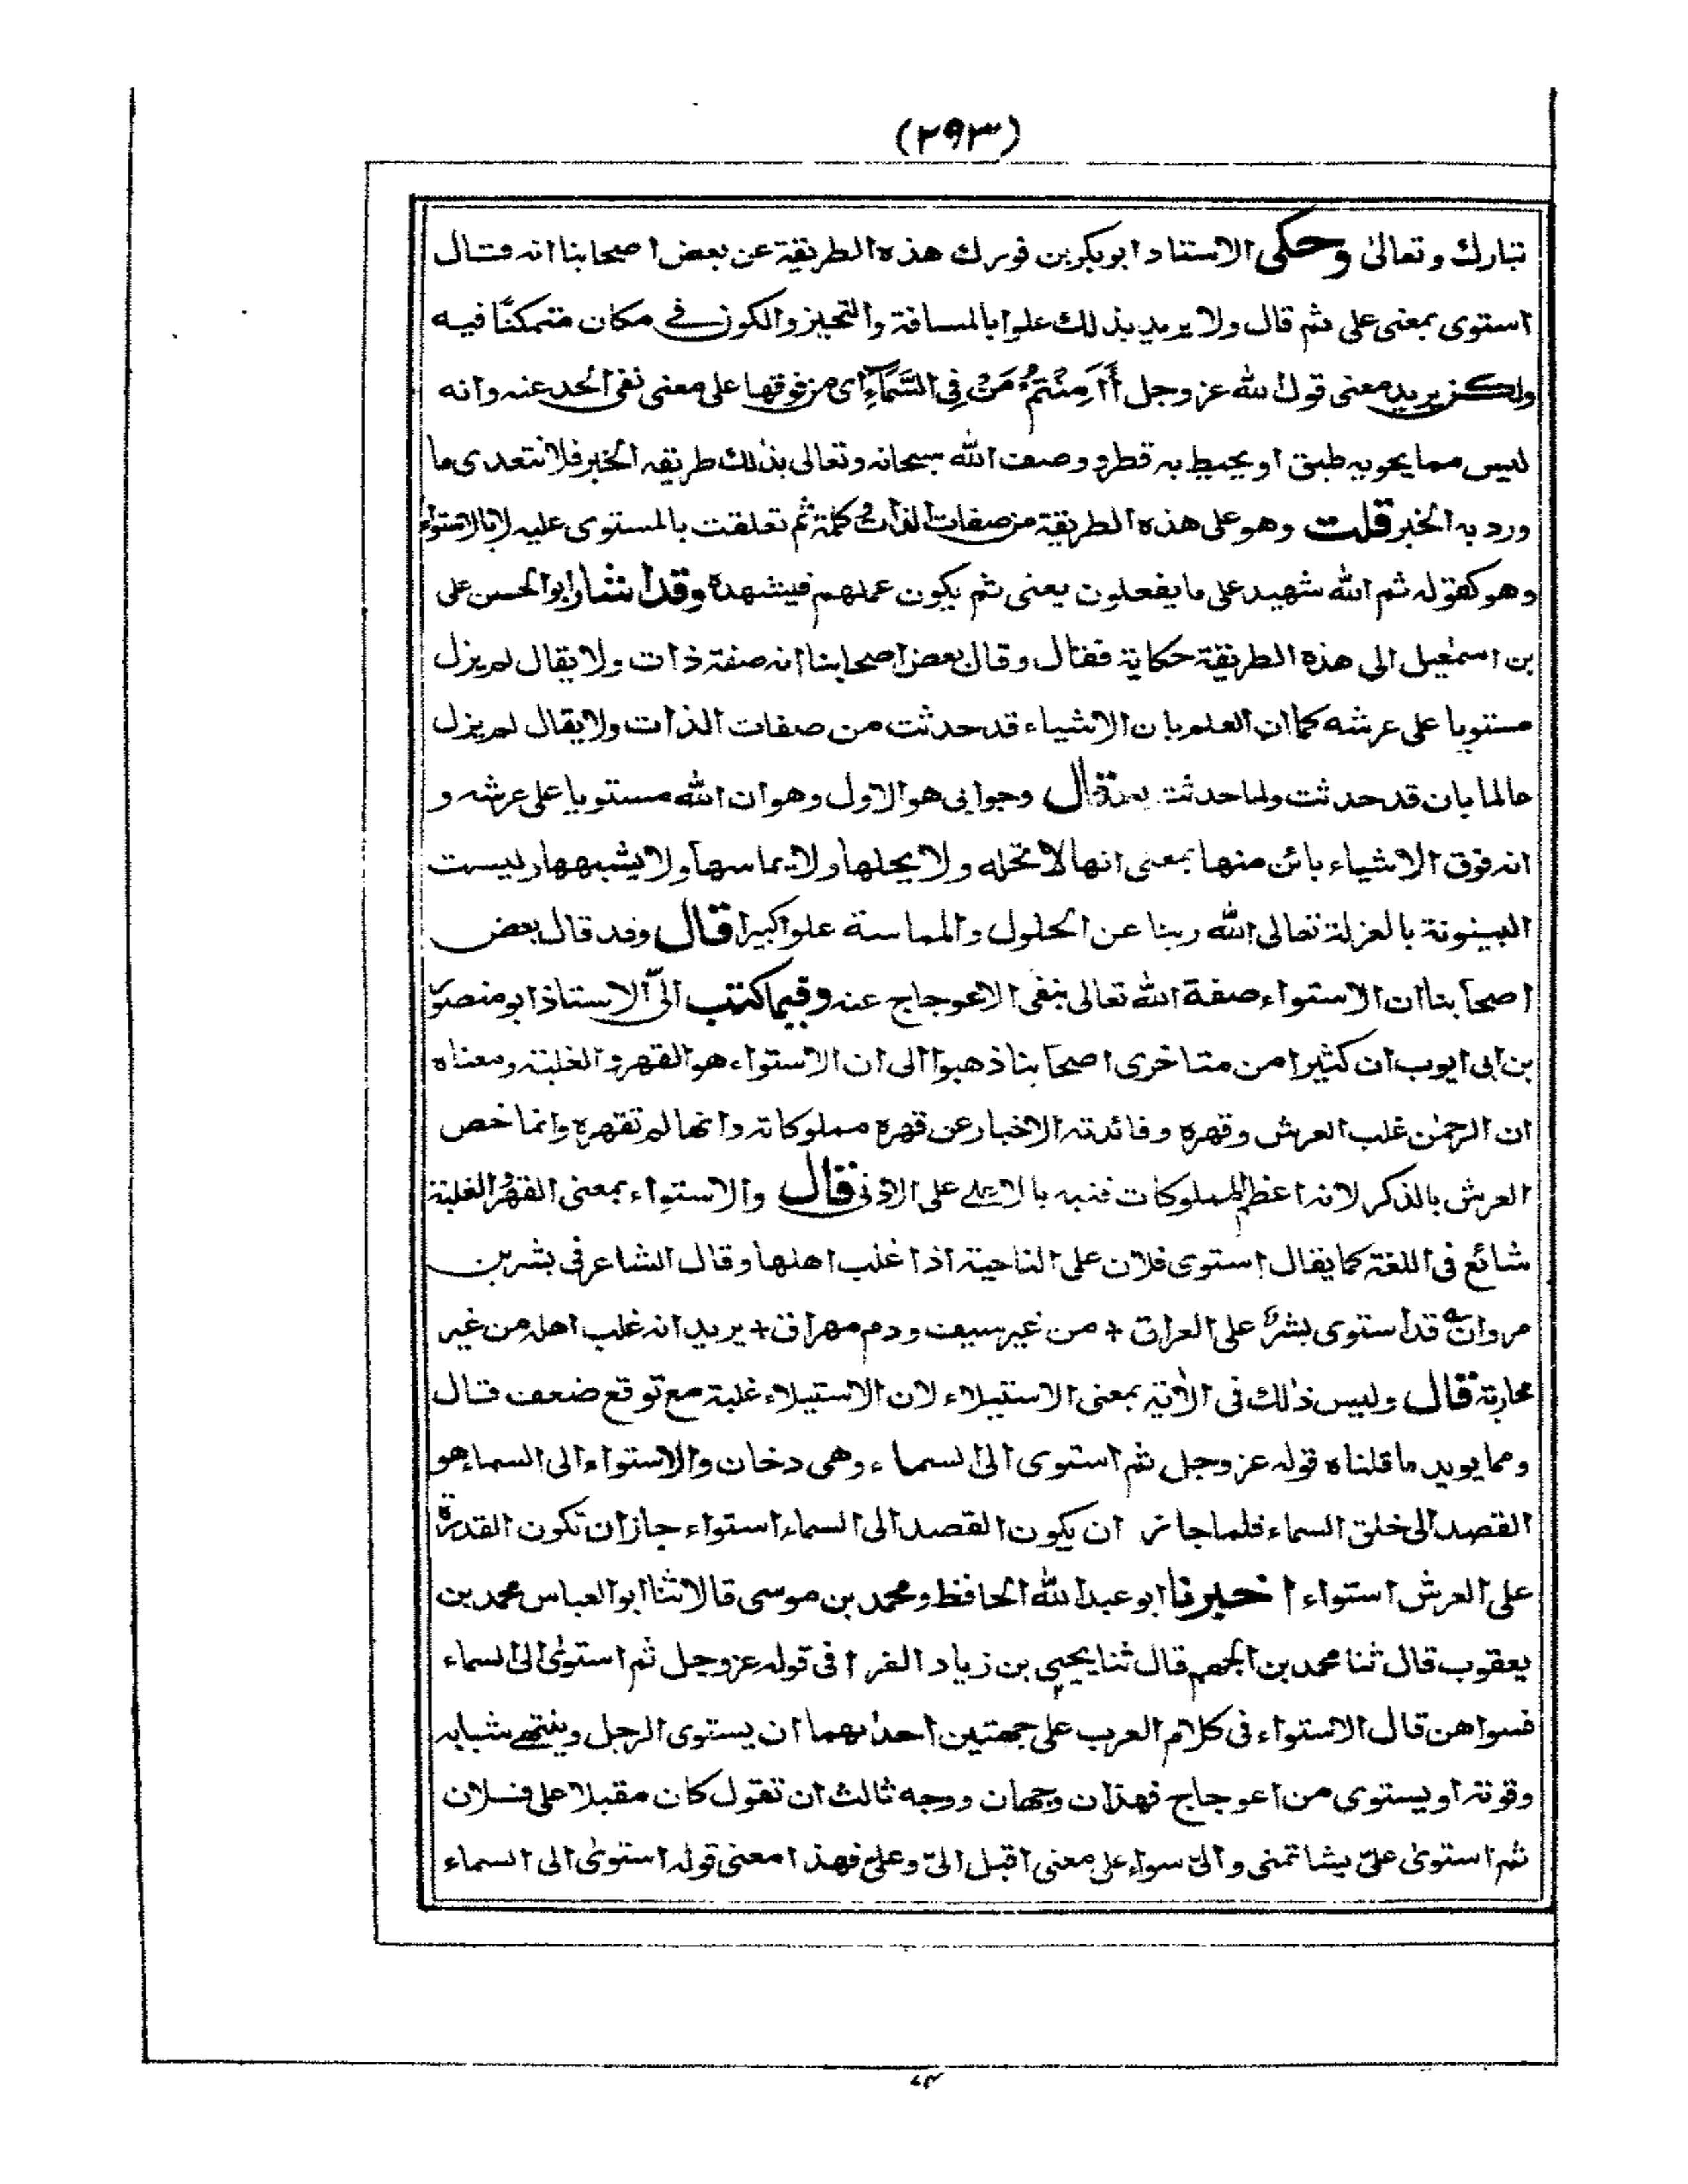 (٢٩٣)
تبارك وتعالى وحكى الاستاد ابوبكربن فورك هذه الطريقة عن بعض اصحابنا انه قال
استوى بمعنى على ثم قال ولا يريد بذلك علوا بالمسافة والتحيز والكون في مكان متمكنًا فيه
ولكن يريد معنى قول الله عز وجل أَأَمِنْتُمْ مَنْ فِي السَّمَآءِ اى من فوقها على معنى نفى الحد عنه وانه
ليس مما يحويه طبق او يحيط به قطر ووصف الله سبحانه وتعالى بذلك طريقه الخبر فلا نتعدى ما
ورد به الخبر قلت وهو على هذه الطريقة من صفات الذات وكلمة ثم تعلقت بالمستوى عليه لا بالاستواء
وهو كقوله ثم الله شهيد على ما يفعلون يعنى ثم يكون عملهم فيشهده وقد اشار ابوالحسن على
بن اسمٰعيل الى هذه الطريقة حكاية فقال وقال بعض اصحابنا انه صفة ذات ولا يقال لم يزل
مستويا على عرشه كما ان العلم بان الاشياء قد حدثت من صفات الذات ولا يقال لم يزل
عالما بان قد حدثت ولما حدثت بعد قال وجوابى هو الاول وهو ان الله مستويا على عرشه و
انه فوق الاشياء بائن منها بمعنى انها لا تحله ولا يحلها ولا يماسها ولا يشبهها وليست
البينونة بالعزلة تعالى الله ربنا عن الحلول والمماسة علوا كبيرا قال وقد قال بعض
اصحابنا ان الاستواء صفة الله تعالى بنفى الاعوجاج عنه وفيما كتب الىّ الاستاذ ابو منصور
بن ابى ايوب ان كثيرا من متاخرى اصحابنا ذهبوا الى ان الاستواء هو القهر والغلبة ومعناه
ان الرحمٰن غلب العرش وقهره وفائدته الاخبار عن قهره مملوكاته وانها لم تقهره وانما خص
العرش بالذكر لانه اعظم المملوكات فنبه بالاعلى على الادنى قال والاستواء بمعنى القهر والغلبة
شائع فى اللغة كما يقال استوى فلان على الناحية اذا غلب اهلها وقال الشاعر فى بشر بن
مروان قد استوى بشرٌ على العراق + من غير سيف ودم مهراق + يريد انه غلب اهله من غير
محاربة قال وليس ذٰلك فى الاٰية بمعنى الاستيلاء لان الاستيلاء غلبة مع توقع ضعف قال
ومما يويد ما قلناه قوله عز وجل ثم استوى الى السماء وهى دخان والاستواء الى السماء هو
القصد الى خلق السماء فلما جاز ان يكون القصد الى السماء استواء جاز ان تكون القدرة
على العرش استواء اخبرنا ابو عبد الله الحافظ ومحمد بن موسى قالا ثنا ابو العباس محمد بن
يعقوب قال ثنا محمد بن الجهم قال ثنا يحيى بن زياد الفرا فى قوله عز وجل ثم استوىٰ الى السماء
فسواهن قال الاستواء فى كلام العرب على جهتين احداهما ان يستوى الرجل وينتهى شبابه
وقوته او يستوى من اعوجاج فهذان وجهان ووجه ثالث ان تقول كان مقبلا على فلان
ثم استوىٰ علىّ يشاتمنى والىّ سواء على معنى اقبل الىّ وعلىّ فهذا معنى قوله استوىٰ الى السماء